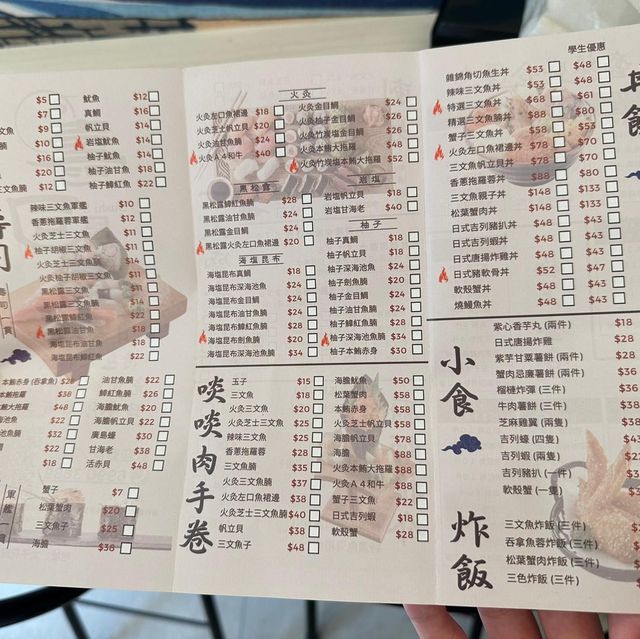 $5
$7
三文魚 $9
$10
油甘魚 $16
三文魚腩 $12
魷魚 $12
真鯛 $16
帆立貝 $14
岩塩魷魚 $14
柚子魷魚 $14
柚子油甘魚 $18
柚子鰤魟魚 $22
辣味三文魚軍艦 $10
香蔥拖羅蓉軍艦 $12
火灸芝士三文魚 $11
柚子胡椒三文魚 $11
火灸芝士三文魚腩 $14
火灸柚子胡椒三文魚 $11
黑松露三文魚 $11
黑松露三文魚腩 $14
黑松露鰤魟魚 $22
黑松露油甘魚 $18
海塩昆布劍魚腩 $18
海塩昆布油甘魚腩 $22
本鮪赤身 (吞拿魚) $28
本鮪拖羅 $38
本鮪大拖羅 $48
$22
$32
$22
$18
油甘魚腩 $22
鰤魟魚腩 $26
海膽魷魚 $20
海膽帆立貝 $22
廣島蠔 $30
甘海老 $38
活赤貝 $48
軍艦
蟹子 $7
松葉蟹肉 $20
三文魚子 $25
海膽 $38
火灸
火灸左口魚裙邊 $18
火灸芝士帆立貝 $20
火灸油甘魚腩 $24
火灸A4和牛 $40
火灸金目鯛 $24
火灸柚子金目鯛 $26
火灸竹炭塩金目鯛 $26
火灸本鮪大拖羅 $48
火灸竹炭塩本鮪大拖羅 $52
黑松露
黑松露鰤魟魚腩 $28
黑松露油甘魚腩 $24
黑松露金目鯛 $24
黑松露火灸左口魚裙邊 $20
海塩昆布
海塩昆布真鯛 $18
海塩昆布深海池魚 $24
海塩昆布金目鯛 $24
海塩昆布油甘魚腩 $24
海塩昆布鰤魟魚腩 $28
海塩昆布劍魚腩 $20
海塩昆布深海池魚腩 $34
岩塩
岩塩帆立貝 $18
岩塩甘海老 $40
柚子
柚子真鯛 $18
柚子帆立貝 $18
柚子深海池魚 $24
柚子劍魚腩 $20
柚子金目鯛 $24
柚子油甘魚腩 $24
柚子鰤魟魚腩 $28
柚子深海池魚腩 $34
柚子本鮪赤身 $30
啖啖肉手卷
玉子 $15
三文魚 $18
火灸三文魚 $20
火灸芝士三文魚 $25
辣味三文魚 $25
香蔥拖羅蓉 $28
三文魚腩 $35
火灸三文魚腩 $37
火灸左口魚裙邊 $38
火灸芝士三文魚腩 $40
帆立貝 $38
三文魚子 $48
海膽魷魚 $50
松葉蟹肉 $58
本鮪赤身 $58
火灸芝士帆立貝 $58
海膽帆立貝 $78
海膽 $88
火灸本鮪大拖羅 $88
火灸A4和牛 $88
蟹子三文魚 $22
日式吉列蝦 $18
軟殼蟹 $28
學生優惠
丼飯
雜錦角切魚生丼 $53 $48
辣味三文魚丼 $53 $48
特選三文魚丼 $68 $61
精選三文魚腩丼 $88 $80
蟹子三文魚丼 $58 $53
火灸左口魚裙邊丼 $78 $70
三文魚帆立貝丼 $78 $70
香蔥拖羅蓉丼 $88 $80
三文魚親子丼 $148 $133
松葉蟹肉丼 $148 $133
日式吉列豬扒丼 $48 $43
日式吉列蝦丼 $48 $43
日式唐揚炸雞丼 $48 $43
日式豬軟骨丼 $52 $47
軟殼蟹丼 $48 $43
燒鰻魚丼 $48 $43
小食
紫心香芋丸 (兩件) $18
日式唐揚炸雞 $28
紫芋甘粟薯餅 (兩件) $28
蟹肉忌廉薯餅 (兩件) $36
榴槤炸彈 (三件) $36
牛肉薯餅 (三件) $38
芝麻雞翼 (兩件) $38
吉列蠔 (四隻)
吉列蝦 (兩隻)
吉列豬扒 (一件)
軟殼蟹 (一隻)
炸飯
三文魚炸飯 (三件)
吞拿魚蓉炸飯 (三件)
松葉蟹肉炸飯 (三件)
三色炸飯 (三件)